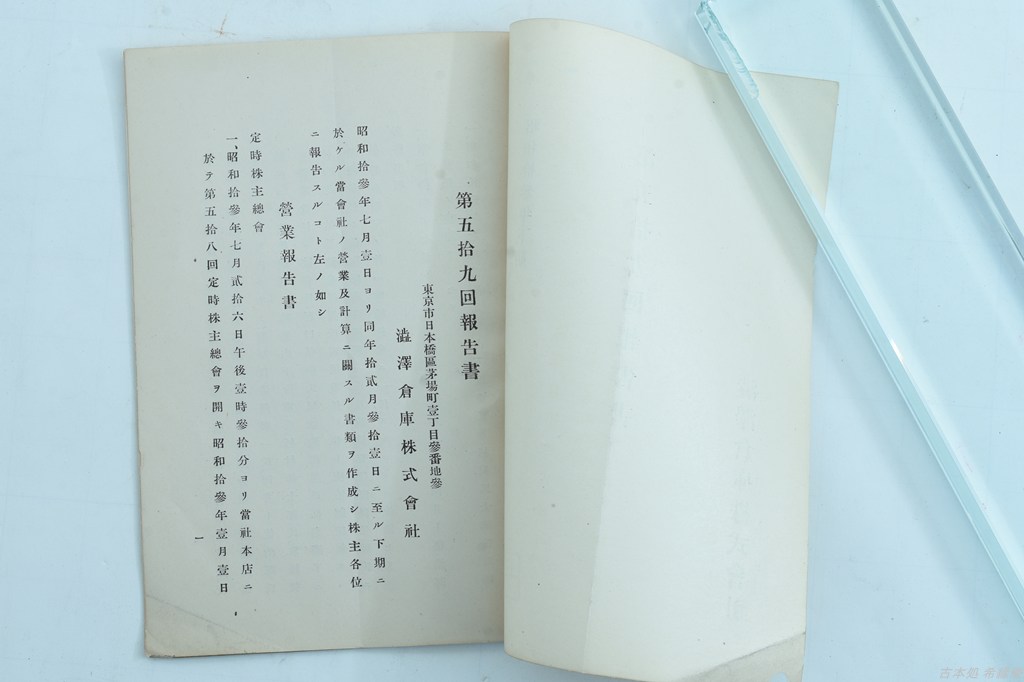 第五拾九回報告書
東京市日本橋區茅場町壹丁目參番地參
澁澤倉庫株式會社
昭和拾參年七月壹日ヨリ同年拾貳月參拾壹日ニ至ル下期ニ
於ケル當會社ノ營業及計算ニ關スル書類ヲ作成シ株主各位
ニ報告スルコト左ノ如シ
營業報告書
定時株主總會
一、昭和拾參年七月貳拾六日午後壹時參拾分ヨリ當社本店ニ
於テ第五拾八回定時株主總會ヲ開キ昭和拾參年壹月壹日
一
古本処